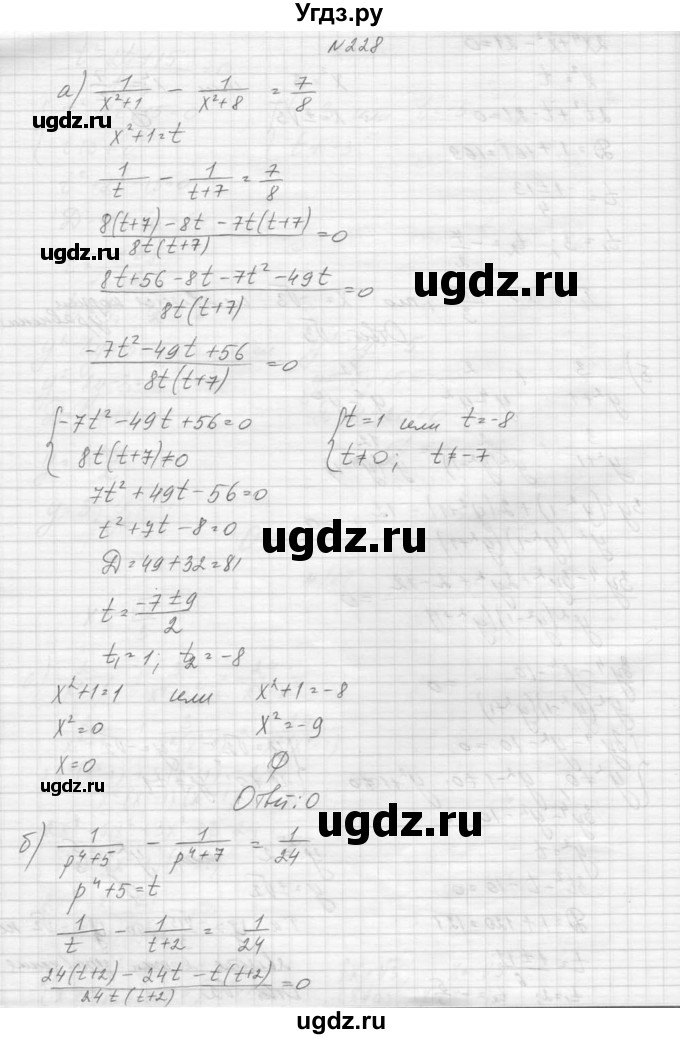 Угдз.ру
N228
а) 1/(x²+1) - 1/(x²+8) = 7/8
ugdz.ru ugdz.ru
x²+1=t
1/t - 1/(t+7) = 7/8
(8(t+7) - 8t - 7t(t+7))/(8t(t+7)) = 0
ugdz.ru
(8t+56-8t-7t²-49t)/(8t(t+7)) = 0
ugdz.ru
(-7t²-49t+56)/(8t(t+7)) = 0
{-7t²-49t+56=0 {t=1 или t=-8
8t(t+7)≠0 t≠0; t≠-7
7t²+49t-56=0
t²+7t-8=0
ugdz.ru ugdz.ru
D=49+32=81
t=(-7±9)/2
t₁=1; t₂=-8
ugdz.ru
x²+1=1 или x²+1=-8
x²=0 x²=-9
x=0 ∅
ugdz.ru
Ответ: 0
ugdz.ru
б) 1/(p⁴+5) - 1/(p⁴+7) = 1/24
p⁴+5=t
1/t - 1/(t+2) = 1/24
ugdz.ru
(24(t+2) - 24t - t(t+2))/(24t(t+2)) = 0
ugdz.ru